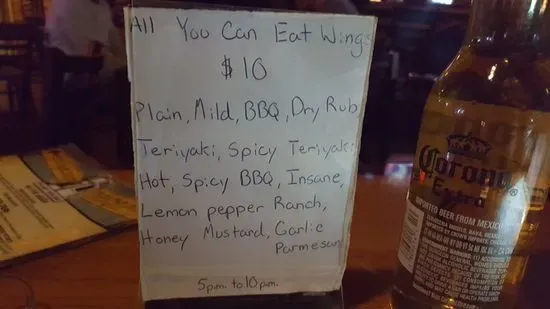 All You Can Eat Wings
$10
Plain, Mild, BBQ, Dry Rub
Teriyaki, Spicy Teriyaki
Hot, Spicy BBQ, Insane,
Lemon pepper Ranch,
Honey Mustard, Garlic
Parmesan
5p.m. to 10p.m.
Corona
Extra
IMPORTED BEER FROM MEXICO